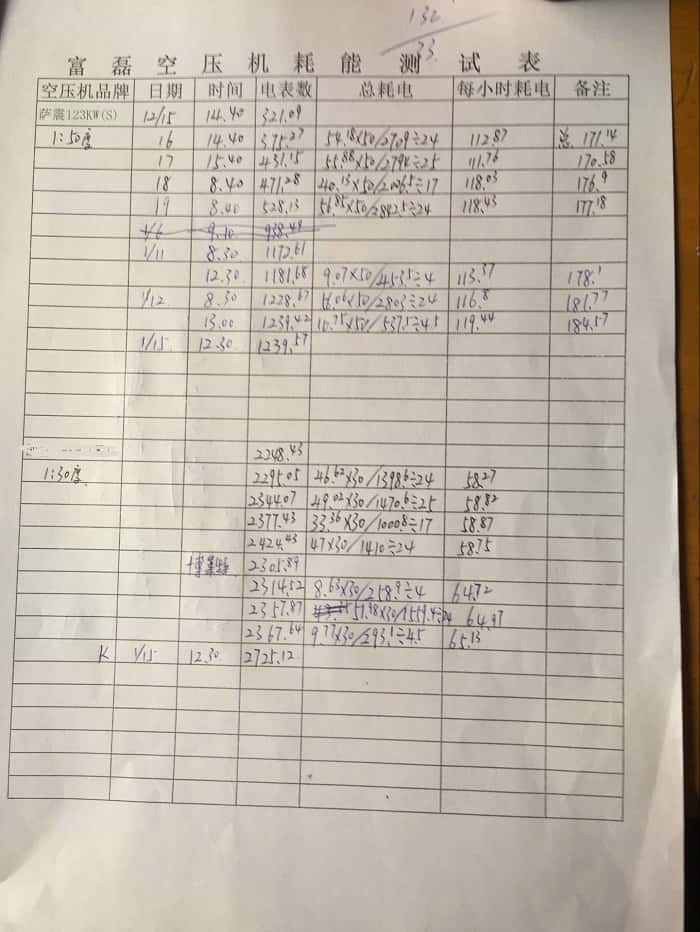 132
33
富磊空压机耗能测试表
空压机品牌 日期 时间 电表数 总耗电 每小时耗电 备注
萨震123KW(S) 12/15 14.40 321.09
1:50度 16 14.40 375.27 54.18×50/2709÷24 112.87 总 171.14
17 15.40 431.15 55.88×50/2794÷25 111.76 170.58
18 8.40 471.28 40.13×50/2006.5÷17 118.03 176.9
19 8.40 528.13 56.85×50/2842.5÷24 118.43 177.18
1/6 9.10 938.49
1/11 8.30 1172.61
12.30 1181.68 9.07×50/453.5÷4 113.37 178.1
1/12 8.30 1228.67 .06×50/2803÷24 116.8 181.77
13.00 1239.42 10.75×50/537.5÷4.5 119.44 184.57
1/15 12.30 1239.57
2248.43
1:30度 2295.05 46.62×30/1398.6÷24 58.27
2344.07 49.02×30/1470.6÷25 58.82
2377.43 33.36×30/1000.8÷17 58.87
2424.43 47×30/1410÷24 58.75
2305.89
2314.52 8.63×30/258.9÷4 64.72
2357.87 51.98×30/1559.4÷24 64.97
2367.64 9.77×30/293.1÷4.5 65.13
K 1/15 12.30 2725.12